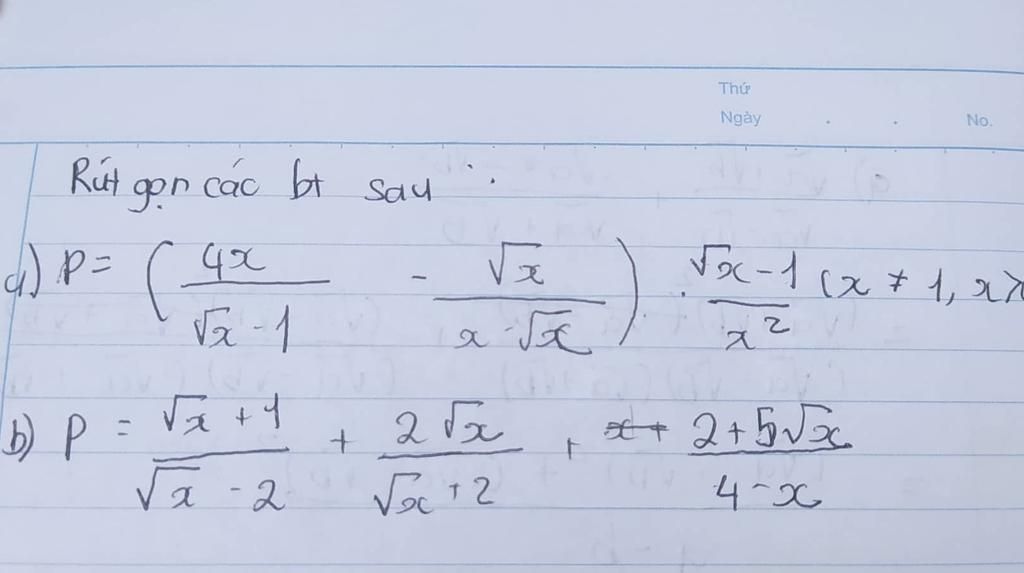 Thứ
Ngày . . No.
Rút gọn các bt sau :
a) P = ( 4x / (√x - 1) - √x / (x - √x) ) . (√x - 1) / x² (x ≠ 1, x >
b) P = (√x + 1) / (√x - 2) + 2√x / (√x + 2) + (2 + 5√x) / (4 - x)